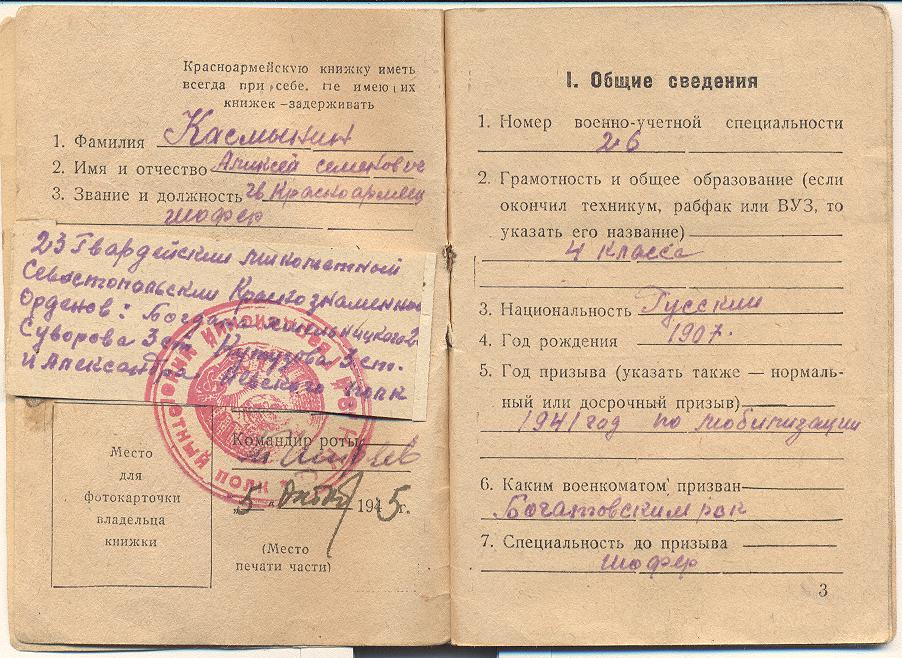 Красноармейскую книжку иметь
всегда при себе. Не имеющих
книжек –задерживать
1. Фамилия Касмынин
2. Имя и отчество Алексей Семенович
3. Звание и должность Гв Красноармеец
шофер
23 Гвардейский минометный
Севастопольский Краснознаменный
Орденов: Богдана Хмельницкого 2
Суворова 3 ст. Кутузова 3 ст.
и Александра Невского полк
Место
для
фотокарточки
владельца
книжки
Командир роты
„5 “ 1945г.
(Место
печати части)
I. Общие сведения
1. Номер военно-учетной специальности
26
2. Грамотность и общее образование (если
окончил техникум, рабфак или ВУЗ, то
указать его название)
4 класса
3. Национальность Русский
4. Год рождения 1907.
5. Год призыва (указать также — нормаль-
ный или досрочный призыв)
1941 год по мобилизации
6. Каким военкоматом призван
Богатовским рвк
7. Специальность до призыва
шофер
3